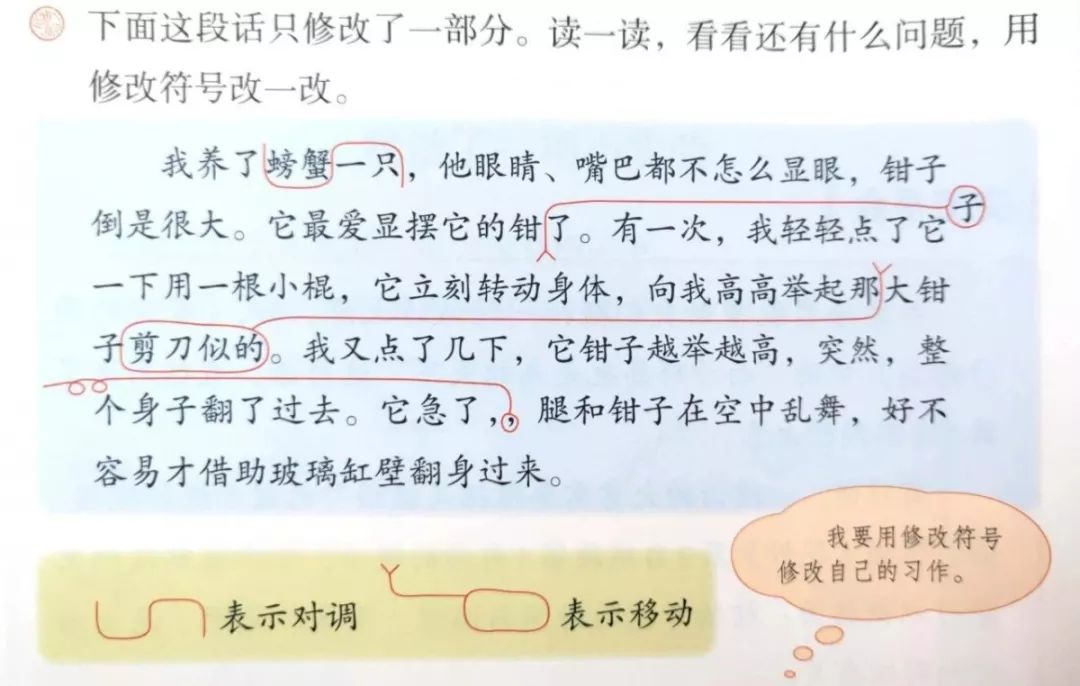 下面这段话只修改了一部分。读一读，看看还有什么问题，用
修改符号改一改。
我养了螃蟹一只，他眼睛、嘴巴都不怎么显眼，钳子
倒是很大。它最爱显摆它的钳了。有一次，我轻轻点了它
子
一下用一根小棍，它立刻转动身体，向我高高举起那大钳
子剪刀似的。我又点了几下，它钳子越举越高，突然，整
个身子翻了过去。它急了，，腿和钳子在空中乱舞，好不
容易才借助玻璃缸壁翻身过来。
我要用修改符号
修改自己的习作。
表示对调
表示移动